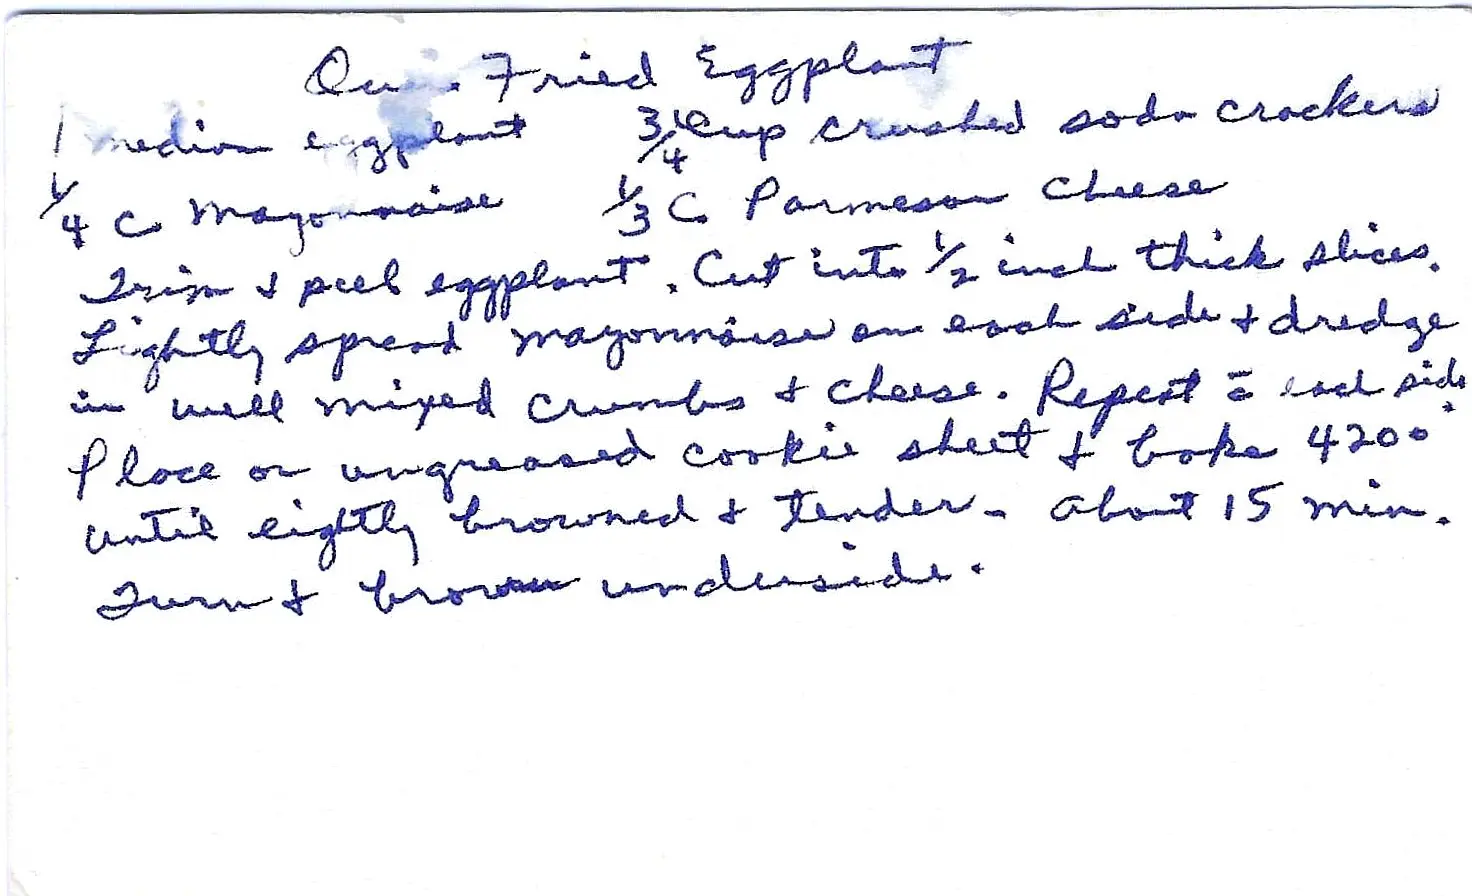 Fried Eggplant
1 medium eggplant 3/4 cup crushed soda crackers
1/4 c. Mayonnaise 1/3 c. Parmesan Cheese
Trim & peel eggplant. Cut into 1/2 inch thick slices.
Lightly spread mayonnaise on each side & dredge
in well mixed crumbs & cheese. Repeat c̄ each side.
Place on ungreased cookie sheet & bake 420°
until lightly browned & tender - about 15 min.
Turn & brown underside.